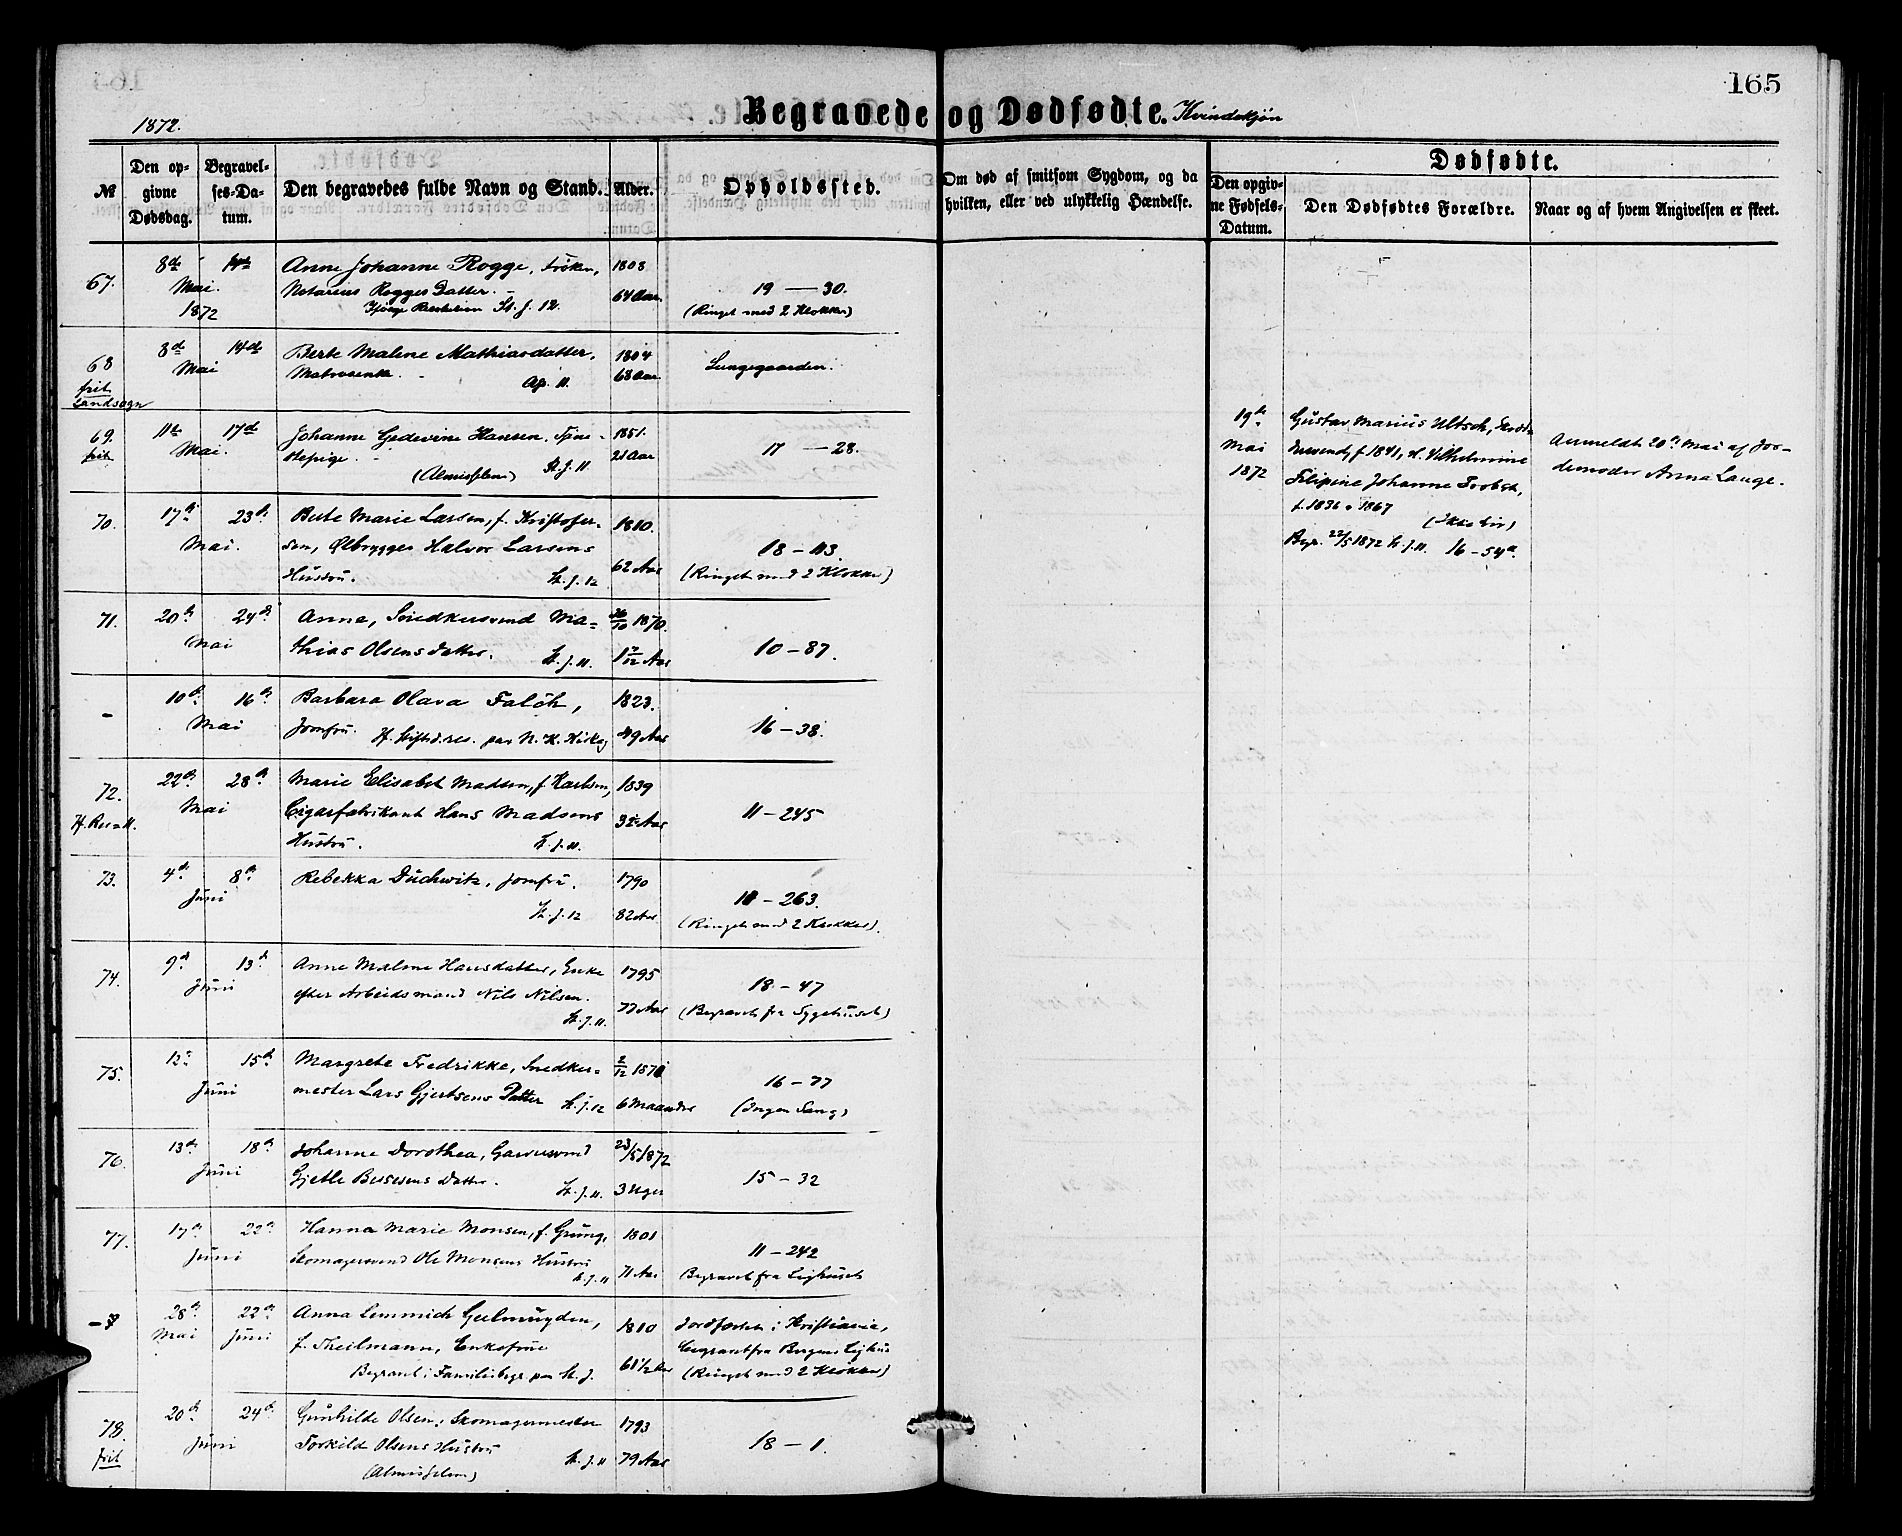 165
1872.
Begravede og Dødfødte. Kvindekjøn
№
Den opgivne Dødsdag.
Begravelses-Datum.
Den begravedes fulde Navn og Stand.
Alder.
Opholdssted.
Om død af smitsom Sygdom, og da hvilken, eller ved ulykkelig Hændelse.
Dødfødte.
Den opgivne Fødsels-Datum.
Den Dødfødtes Forældre.
Naar og af hvem Angivelsen er skeet.
67. 8de Mai 1872 14de Anne Johanne Rogge, Frøken, 1808
Notarius Rogges Datter. 64 Aar. 19 — 30.
St. J. 12. (Ringet med 2 Klokker)
68 8de 14de Berte Malene Mathiasdatter, 1804
Mai Matrosenke. Ap. 11. 68 Aar Lungegaarden.
frit
Landsogn
69. 11te 17de Johanne Gedevine Hansen, Tjene- 1851.
frit Mai. stepige. 21 Aar 17 — 28.
(Almisselem) St. J. 11
70. 17de 23de Berte Marie Larsen, f. Kristofer- 1810.
Mai. sen, Ølbrygger Halvor Larsens 18 – 113.
Hustru. St. J. 12 62 Aar (Ringet med 2 Klokker)
71. 20de 24de Anna, Snedkersvend Ma- 26/10 1870.
Mai thias Olsens Datter. St. J. 11. 1 7/12 Aar 10 – 87.
- 10de 16de Barbara Olava Falch, 1823.
Mai Jomfru. 49 Aar 16 – 38.
72. 22de 28de Marie Elisabet Madsen, f. Karlsen, 1839
Mai Cigarfabrikant Hans Madsens 32 Aar 11 – 245
Hustru. St. J. 11.
73. 4de 8de Rebekka Duchwitz, Jomfru. 1790
Juni 18 – 263.
St. J. 12 82 Aar (Ringet med 2 Klokker).
74. 9de 13de Anne Malene Hansdatter, Enke 1795
Juni efter Arbeidsmand Nils Nilsen. 18 – 47
St. J. 11. 77 Aar (Begravet fra Sygehuset)
75. 12te 15de Margrete Fredrikke, Snedker- 2/12 1871
Juni mester Lars Gjertsens Datter St. J. 12 6 Maaneder 16 – 77
(Ingen Sang)
76. 13de 18de Johanne Dorothea, Garversvend 23/5 1872
Juni Gjetle Bessesens Datter. St. J. 11. 3 Uger 15 – 32
77. 17de 22de Hanna Marie Monsen, f. Grung, 1801
Juni Skomagersvend Ole Monsens Hustru 11 – 242
St. J. 11 71 Aar Begravet fra Lighuset
- 28de Mai 22de Juni Anna Lemmich Geelmuyden, 1810 Jordfæstet i Kristiania,
f. Theilmann, Enkefrue begravet fra Bergens Lighus
Begravet i Familiebegr. paa St. J. 61 1/2 Aar (Ringet med 2 Klokker)
78. 20de 24de Gunhilde Olsen, Skomagermester 1793
frit Juni Torkild Olsens Hustru St. J. 11 79 Aar 18 – 1.
(Almisselem)
19de Mai 1872
Gustav Marius Ultsch,
f. 1841, H. Vilhelmine
Filipine Johanne Trobst,
f. 1836 v. 1867
Begr. 22/5 1872 St. J. 11. 16 – 54a.
Anmeldt 20de Mai af Jor-
demoder Anna Lange.